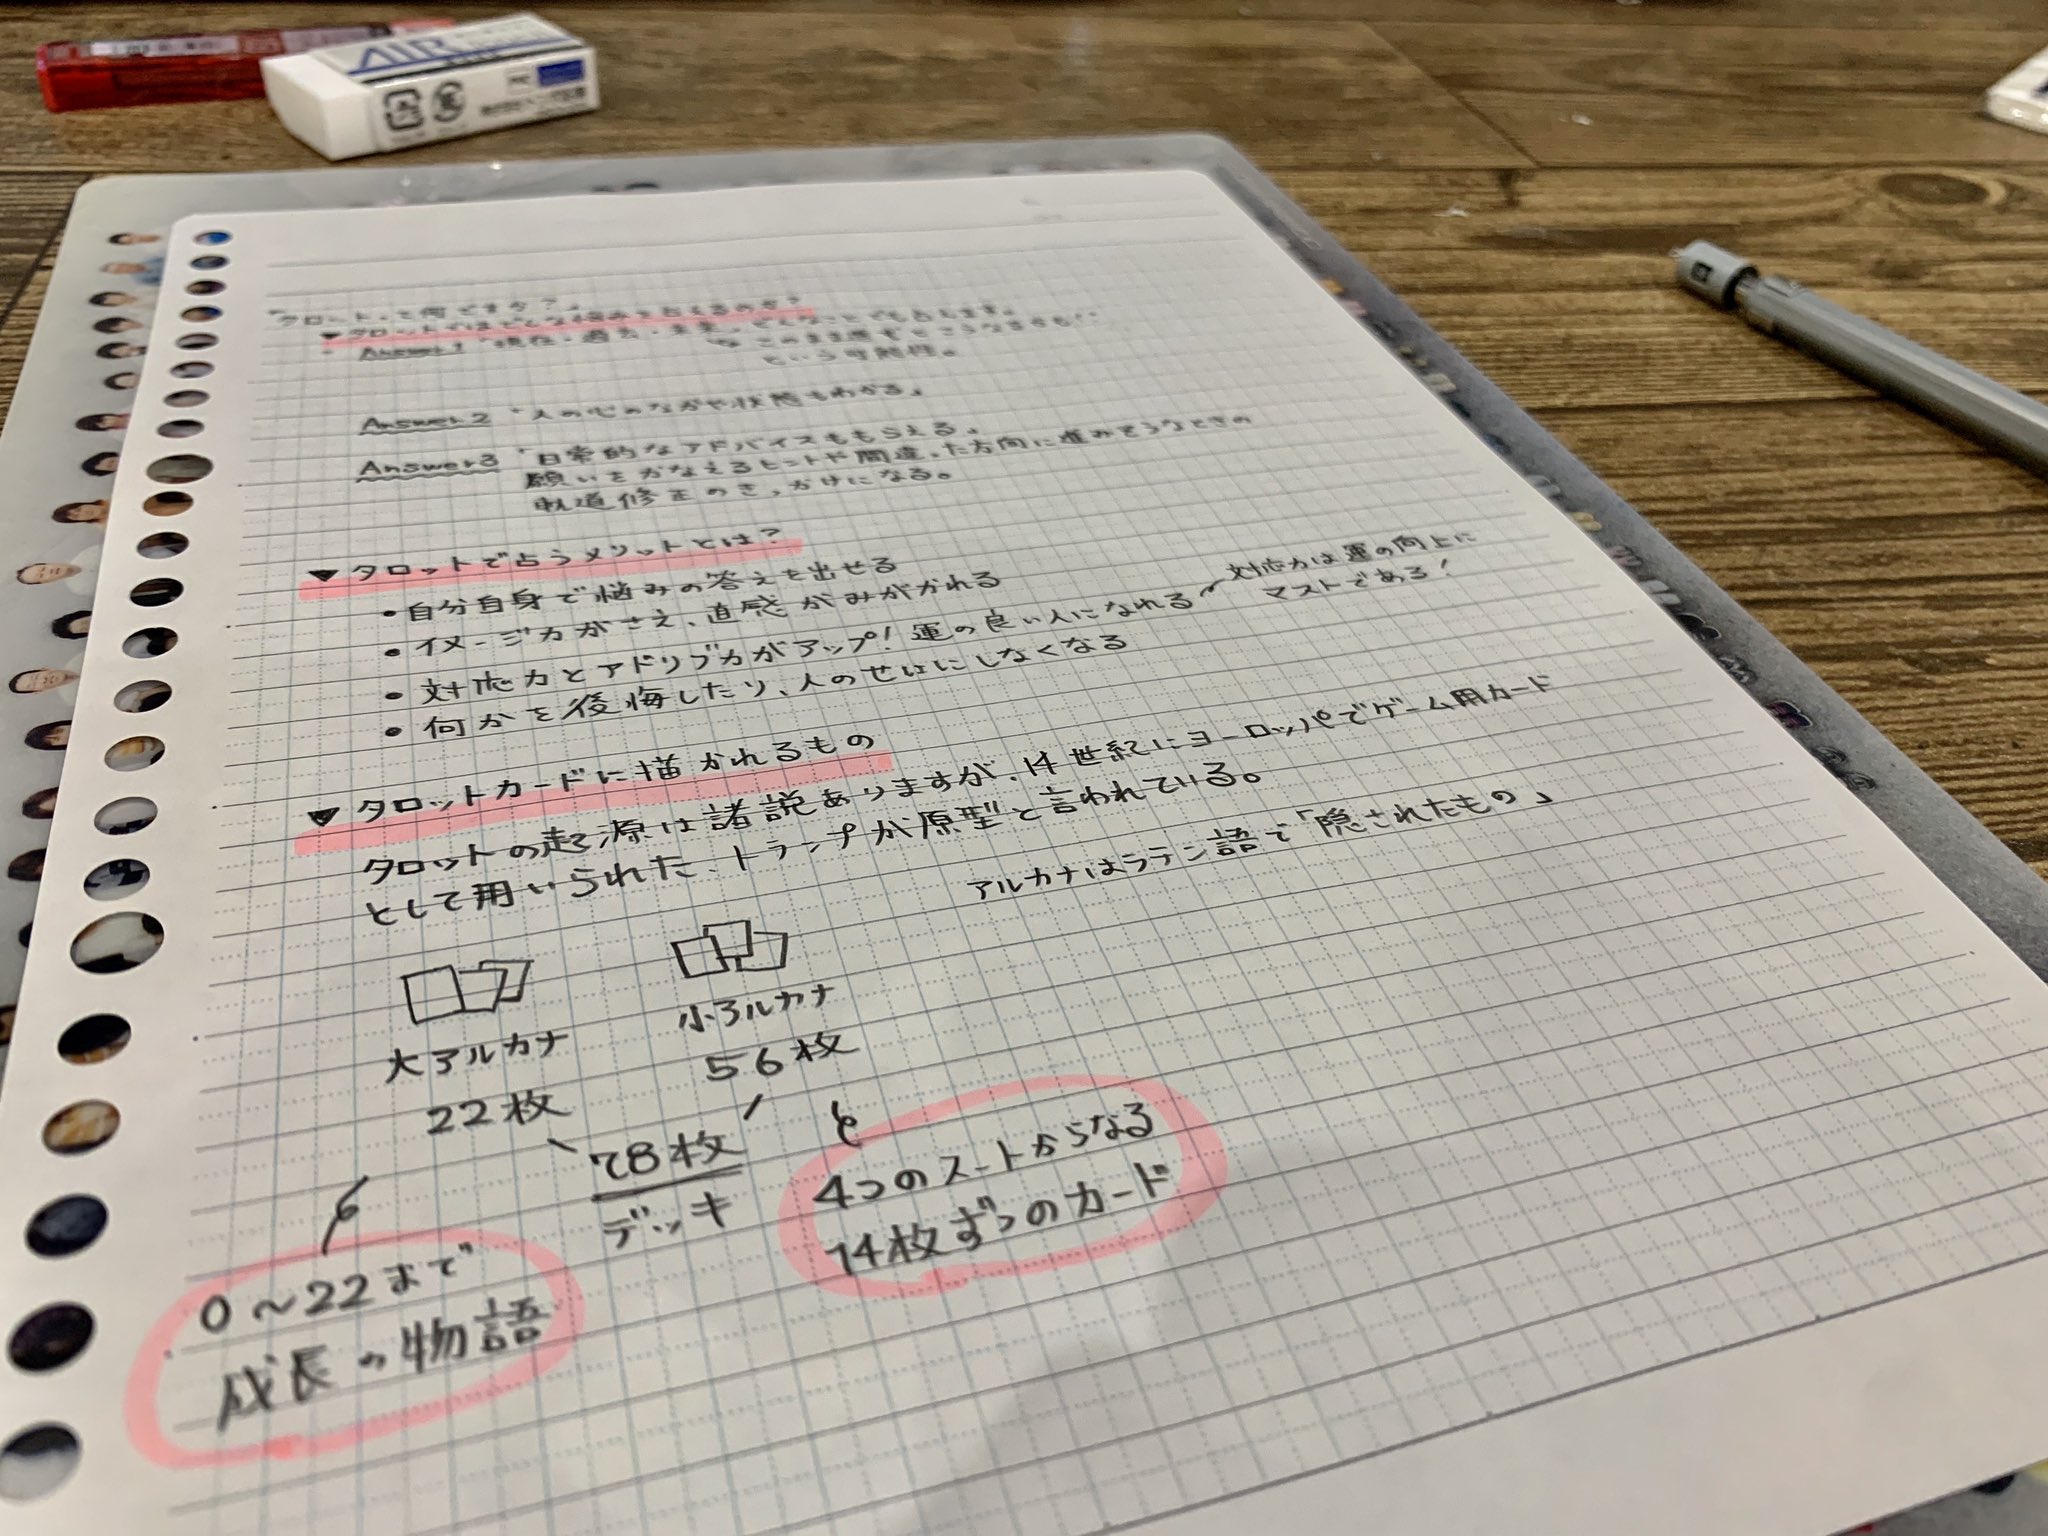 AIR
「タロットって何ですか？」
▼タロットではどんな悩みを占えるのか？
Answer1 「現在・過去・未来、どんなことでも占えます。
このまま進むとこうなるかも!!
という可能性。
Answer2 「人の心のなかや状態もわかる」
Answer3 「日常的なアドバイスももらえる。
願いをかなえるヒントや間違った方向に進みそうなときの
軌道修正のきっかけになる。
▼タロットで占うメリットとは？
・自分自身で悩みの答えを出せる
・イメージ力がさえ、直感がみがかれる
・対応力とアドリブ力がアップ！運の良い人になれる
対応力は運の向上に
マストである！
・何かを後悔したり、人のせいにしなくなる
▼タロットカードに描かれるもの
タロットの起源は諸説ありますが、14世紀にヨーロッパでゲーム用カード
として用いられた、トランプが原型と言われている。
アルカナはラテン語で「隠されたもの」
大アルカナ
22枚
小アルカナ
56枚
78枚
デッキ
0〜22まで
成長の物語
4つのスートからなる
14枚ずつのカード